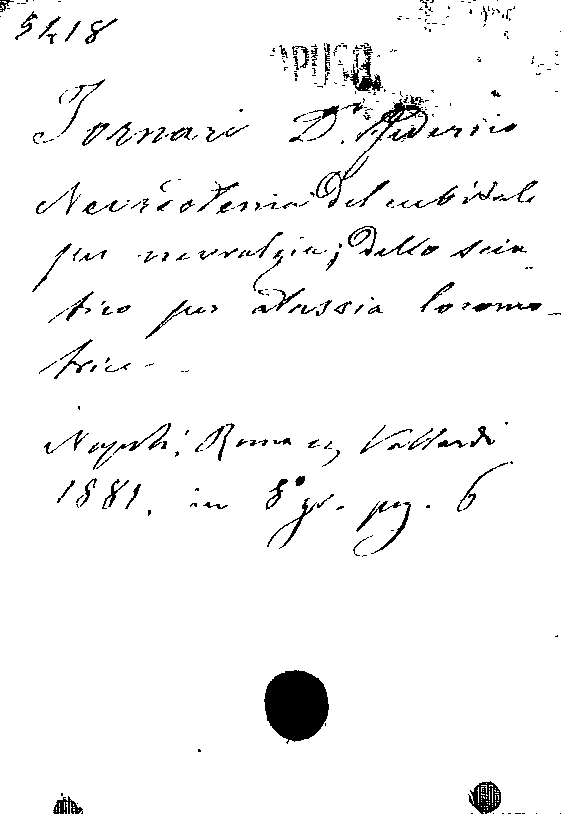 5418
OPUSC.
Fornari Dr. Federico
Nevrotomia del cubitale
per nevralgia; dello scia-
tico per atassia locomo-
trice
Napoli, Roma ecc, Vallardi
1881. in 8° gr. pag. 6